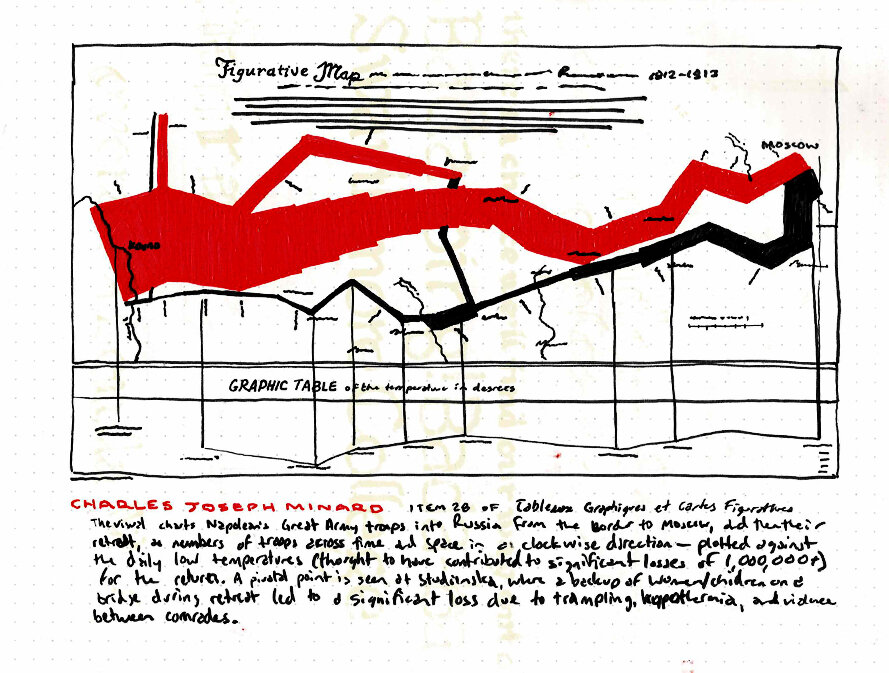 Figurative Map
1812-1813
Moscow
Kovno
GRAPHIC TABLE of the temperature in degrees
CHARLES JOSEPH MINARD ITEM 28 OF Tableaux Graphiques et Cartes Figuratives
The visual charts Napoleon's Great Army troops into Russia from the border to Moscow, and then their
retreat, as numbers of troops across time and space in a clockwise direction — plotted against
the daily low temperatures (thought to have contributed to significant losses of 1,000,000+)
for the return. A pivotal point is seen at Studianska, where a backup of women/children on a
bridge during retreat led to a significant loss due to trampling, hypothermia, and violence
between comrades.